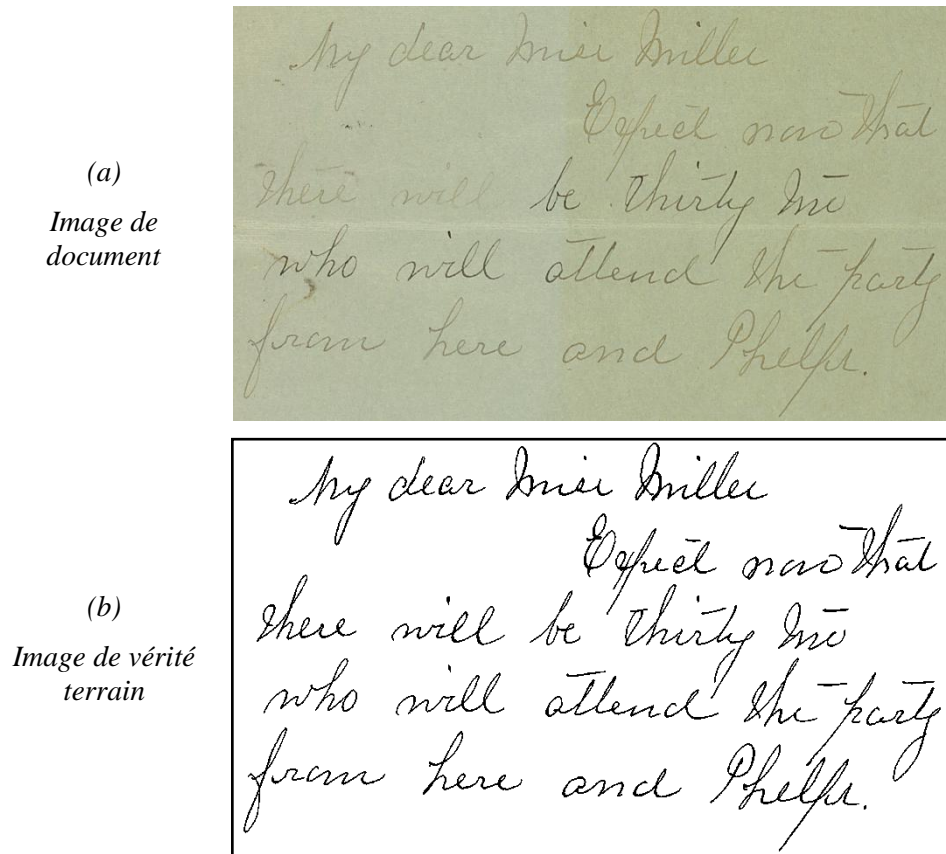 (a)
Image de
document
My dear Miss Miller
Expect now that
there will be thirty two
who will attend the party
from here and Phelps.
(b)
Image de vérité
terrain
My dear Miss Miller
Expect now that
there will be thirty two
who will attend the party
from here and Phelps.